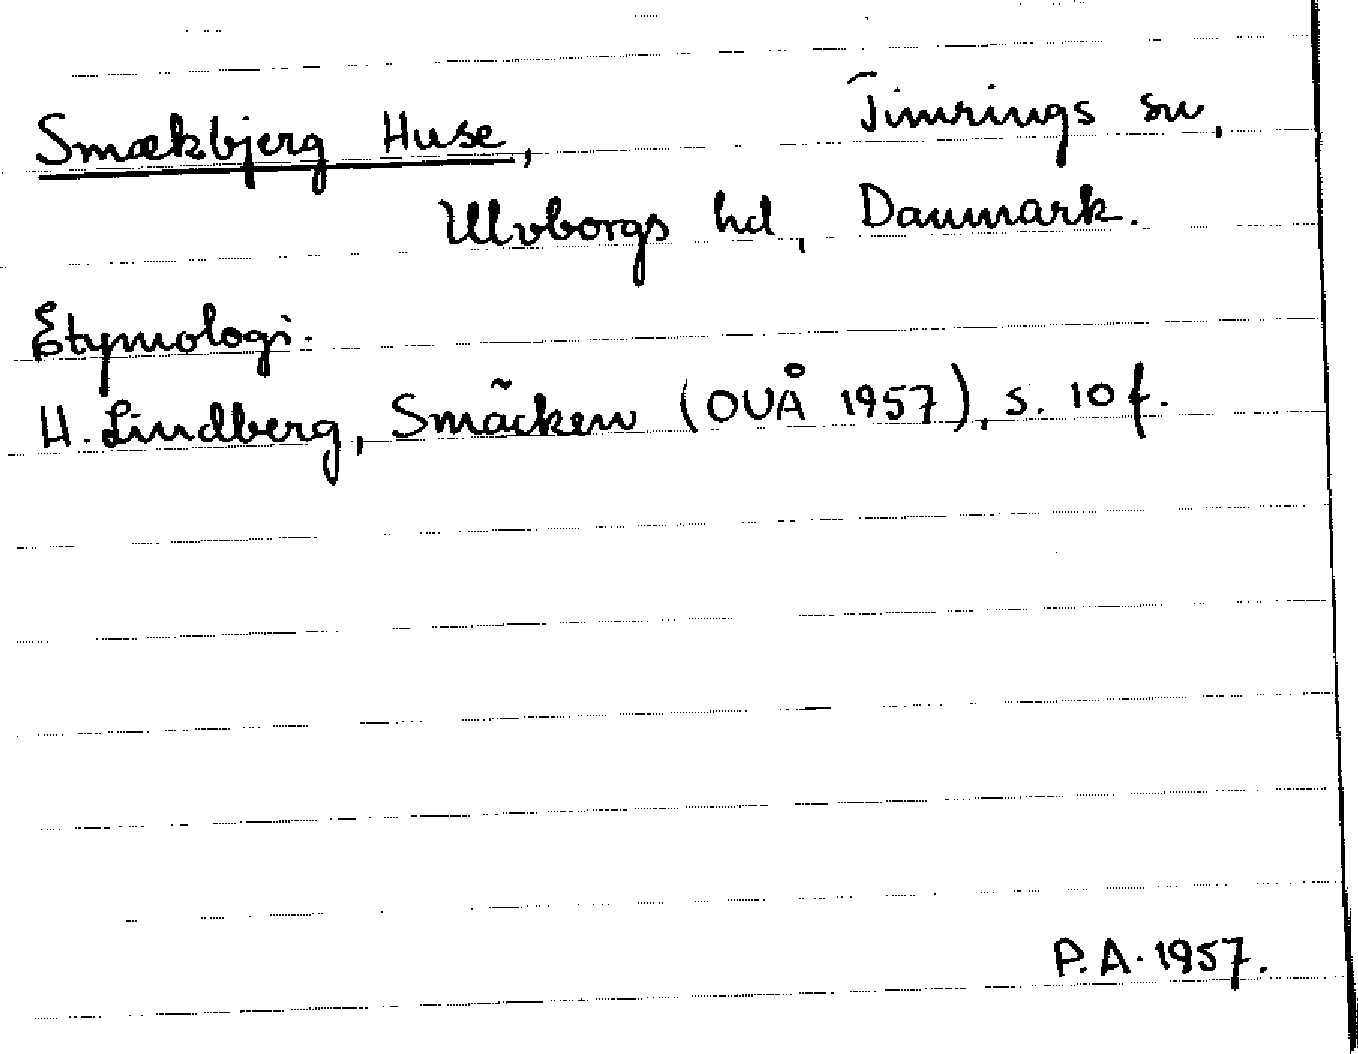 Smækbjerg Huse, Timrings sn,
Ulvborgs hd, Danmark.
Etymologi.
H. Lindberg, Smäcken (OUÅ 1957), s. 10 f.
P.A. 1957.